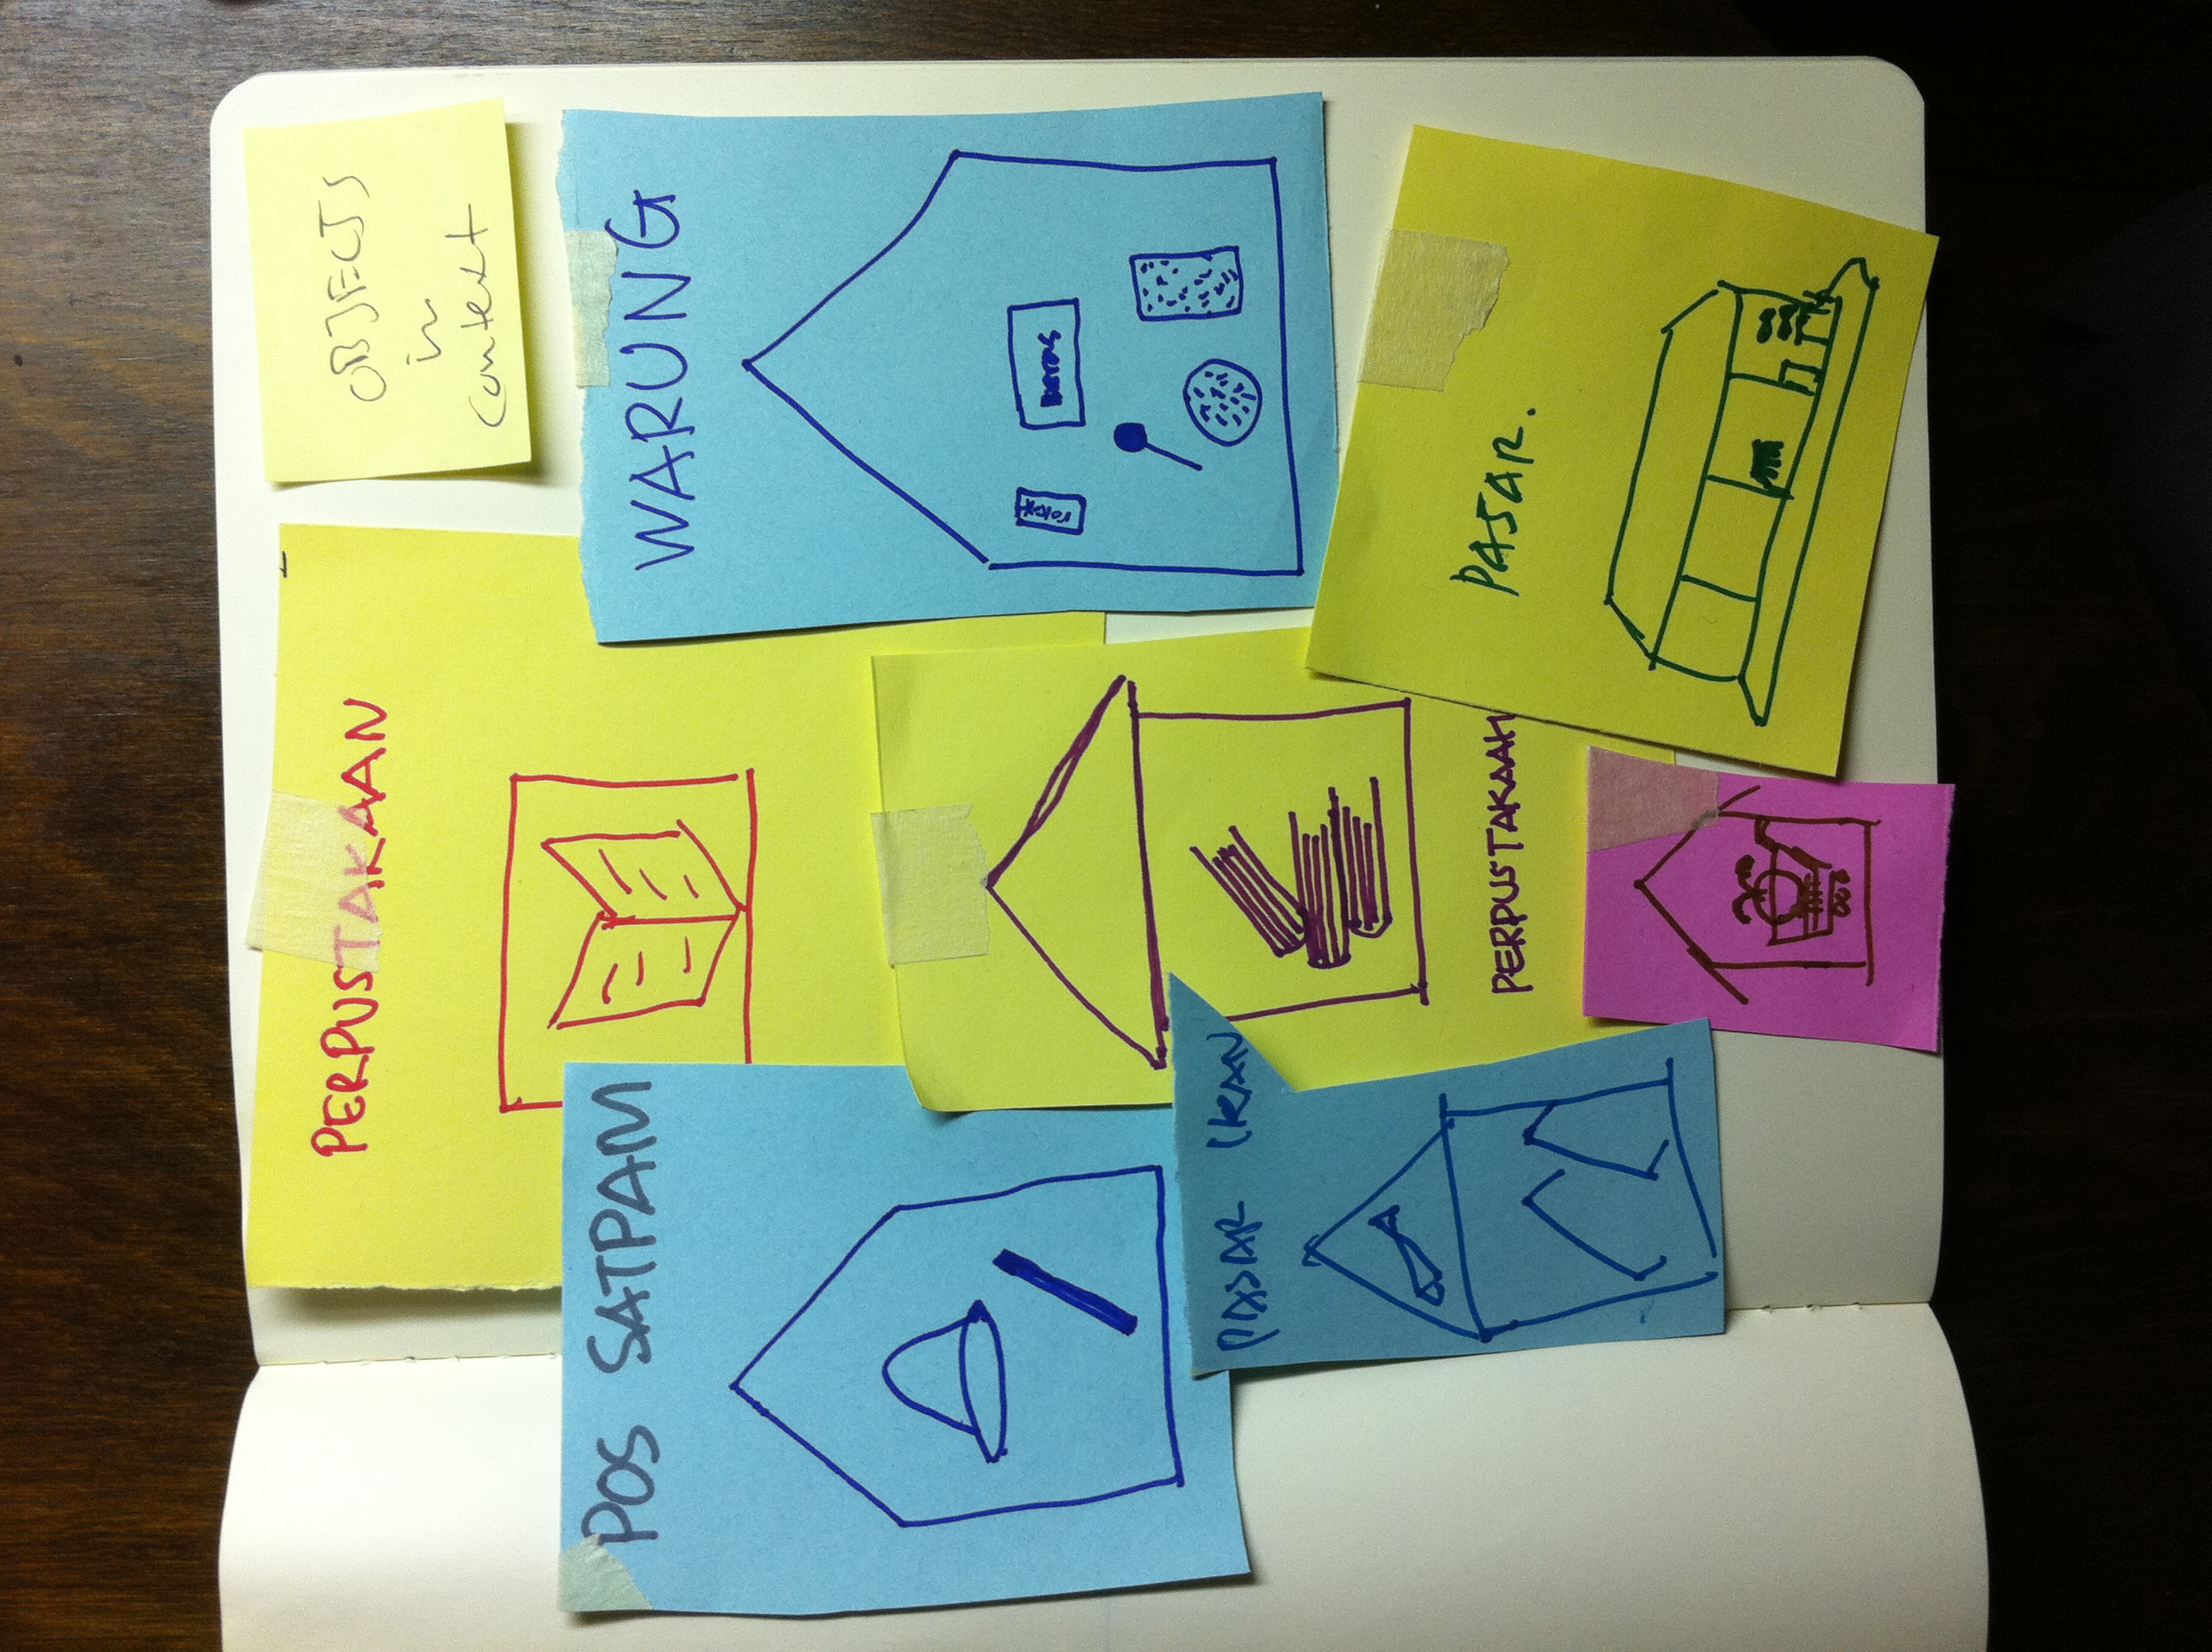 PERPUSTAKAAN
OBJECTS
in
context
POS SATPAM
WARUNG
rokok
beras
PASAR IKAN
PERPUSTAKAAN
PASAR.